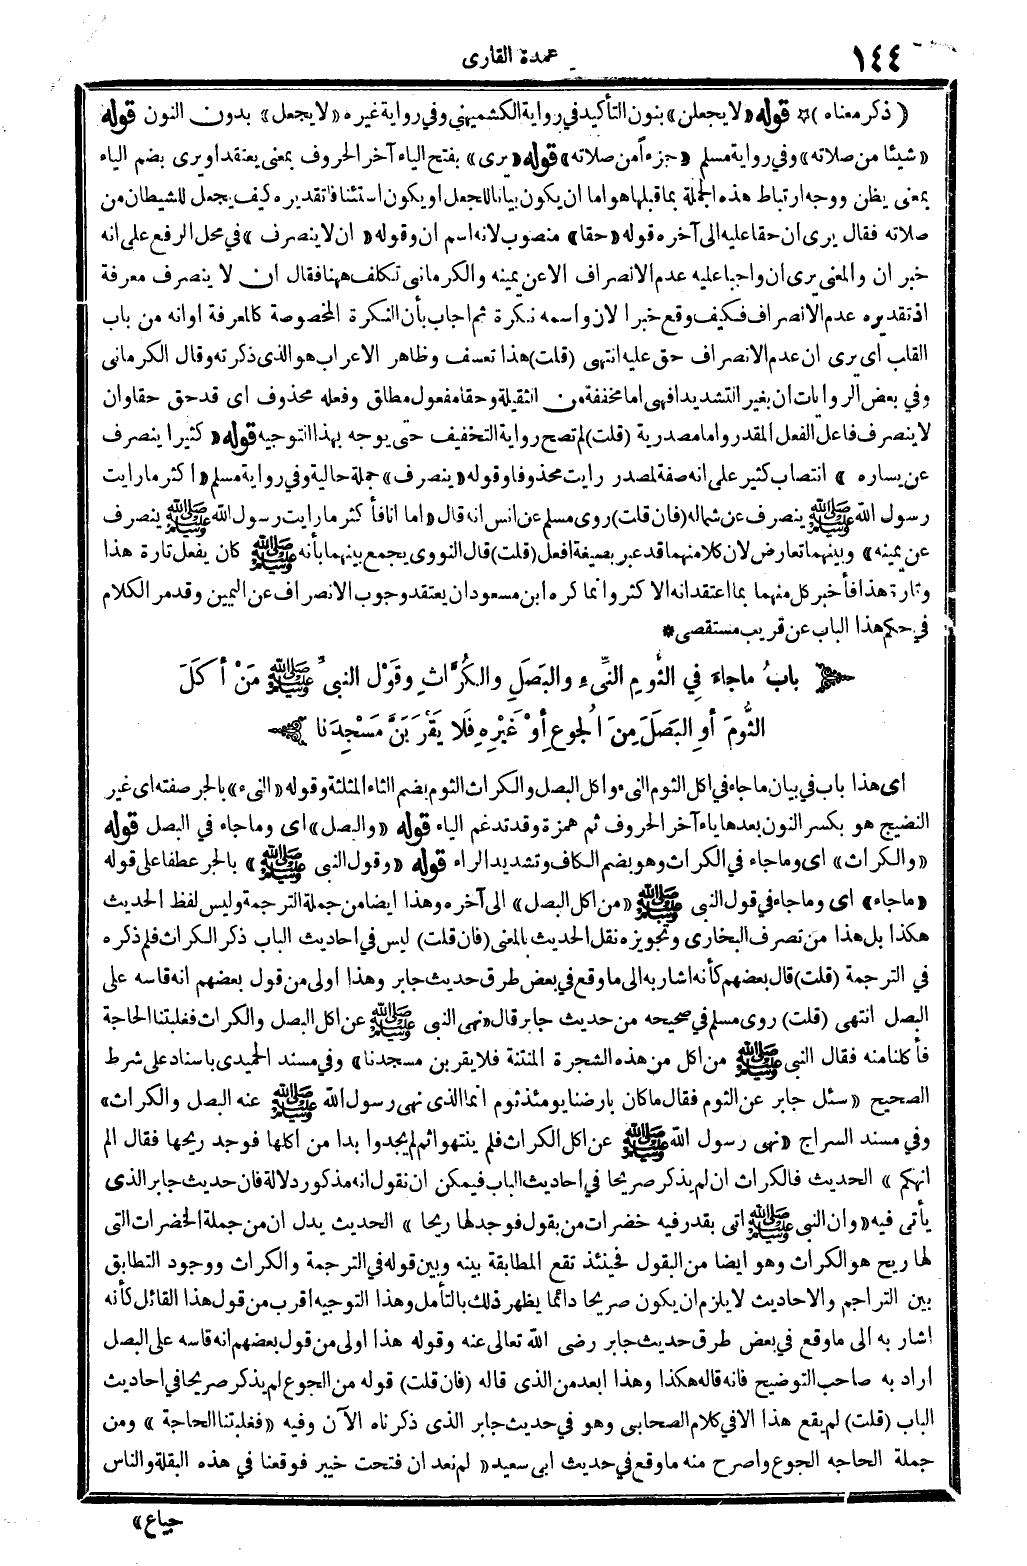 ١٤٤
عمدة القارى
( ذكر معناه ) قوله «لا يجعلن» بنون التأكيد فى رواية الكشميهنى وفى رواية غيره «لا يجعل» بدون النون قوله
«شيئا من صلاته» وفى رواية مسلم «جزءا من صلاته» قوله «يرى» بفتح الياء آخر الحروف بمعنى يعتقد او يرى بضم الياء
بمعنى يظن ووجه ارتباط هذه الجملة بما قبلها هو اما ان يكون بيانا للجعل او يكون استئنافا تقديره كيف يجعل للشيطان من
صلاته فقال يرى ان حقا عليه الى آخره قوله «حقا» منصوب لانه اسم ان وقوله «ان لا ينصرف» فى محل الرفع على انه
خبر ان والمعنى يرى ان واجبا عليه عدم الانصراف الا عن يمينه والكرمانى تكلف ههنا فقال ان لا ينصرف معرفة
اذ تقديره عدم الانصراف فكيف وقع خبرا لان واسمه نكرة ثم اجاب بأن النكرة المخصوصة كالمعرفة او انه من باب
القلب اى يرى ان عدم الانصراف حق عليه انتهى (قلت) هذا تعسف وظاهر الاعراب هو الذى ذكرته وقال الكرمانى
وفي بعض الروايات ان بغير التشديد افهى اما مخففة من الثقيلة وحقا مفعول مطلق وفعله محذوف اى قد حق حقا وان
لا ينصرف فاعل الفعل المقدر واما مصدرية (قلت) لم تصح رواية التخفيف حتى يوجه بهذا التوجيه قوله «كثيرا ينصرف
عن يساره» انتصاب كثير على انه صفة لمصدر رايت محذوفا وقوله «ينصرف» جملة حالية وفى رواية مسلم «اكثر ما رايت
رسول الله ﷺ ينصرف عن شماله (فان قلت) روى مسلم عن انس انه قال «اما انا فأكثر ما رايت رسول الله ﷺ ينصرف
عن يمينه» وبينهما تعارض لان كلا منهما قد عبر بصيغة افعل (قلت) قال النووى يجمع بينهما بأنه ﷺ كان يفعل تارة هذا
وتارة هذا فأخبر كل منهما بما اعتقد انه الاكثر وانما كره ابن مسعود ان يعتقد وجوب الانصراف عن اليمين وقد مر الكلام
في حكم هذا الباب عن قريب مستقصى *
بابُ ما جاءَ فِي الثُّومِ النِّىءِ والبَصَلِ والكُرَّاثِ وقَوْلِ النبىِّ ﷺ مَنْ أكَلَ
الثُّومَ أوِ البَصَلَ مِنَ الجُوعِ أوْ غَيْرِهِ فَلا يَقْرَبَنَّ مَسْجِدَنا
اى هذا باب فى بيان ما جاء فى اكل الثوم النىء واكل البصل والكراث الثوم بضم الثاء المثلثة وقوله «النىء» بالجر صفته اى غير
النضيج هو بكسر النون بعدها ياء آخر الحروف ثم همزة وقد تدغم الياء قوله «والبصل» اى وما جاء في البصل قوله
«والكراث» اى وما جاء في الكراث وهو بضم الكاف وتشديد الراء قوله «وقول النبى ﷺ» بالجر عطفا على قوله
«ما جاء» اى وما جاء فى قول النبى ﷺ «من اكل البصل» الى آخره وهذا ايضا من جملة الترجمة وليس لفظ الحديث
هكذا بل هذا من تصرف البخارى وتجويزه نقل الحديث بالمعنى (فان قلت) ليس فى احاديث الباب ذكر الكراث فلم ذكره
في الترجمة (قلت) قال بعضهم كأنه اشار به الى ما وقع فى بعض طرق حديث جابر وهذا اولى من قول بعضهم انه قاسه على
البصل انتهى (قلت) روى مسلم فى صحيحه من حديث جابر قال «نهى النبى ﷺ عن اكل البصل والكراث فغلبتنا الحاجة
فأكلنا منه فقال النبى ﷺ من اكل من هذه الشجرة المنتنة فلا يقربن مسجدنا» وفى مسند الحميدى باسناد على شرط
الصحيح «سئل جابر عن الثوم فقال ما كان بارضنا يومئذ ثوم انما الذى نهى رسول الله ﷺ عنه البصل والكراث»
وفى مسند السراج «نهى رسول الله ﷺ عن اكل الكراث فلم ينتهوا ثم لم يجدوا بدا من اكلها فوجد ريحها فقال الم
انهكم» الحديث فالكراث ان لم يذكر صريحا فى احاديث الباب فيمكن ان نقول انه مذكور دلالة فان حديث جابر الذى
يأتى فيه «وان النبى ﷺ اتى بقدر فيه خضرات من بقول فوجد لها ريحا» الحديث يدل ان من جملة الخضرات التى
لها ريح هو الكراث وهو ايضا من البقول فحينئذ تقع المطابقة بينه وبين قوله فى الترجمة والكراث ووجود التطابق
بين التراجم والاحاديث لا يلزم ان يكون صريحا دائما يظهر ذلك بالتأمل وهذا التوجيه اقرب من قول هذا القائل كأنه
اشار به الى ما وقع فى بعض طرق حديث جابر رضى الله تعالى عنه وقوله هذا اولى من قول بعضهم انه قاسه على البصل
اراد به صاحب التوضيح فانه قاله هكذا وهذا ابعد من الذى قاله (فان قلت) قوله من الجوع لم يذكر صريحا فى احاديث
الباب (قلت) لم يقع هذا الا فى كلام الصحابى وهو فى حديث جابر الذى ذكرناه الآن وفيه «فغلبتنا الحاجة» ومن
جملة الحاجه الجوع واصرح منه ما وقع فى حديث ابى سعيد «لم نعد ان فتحت خيبر فوقعنا فى هذه البقلة والناس
جياع»